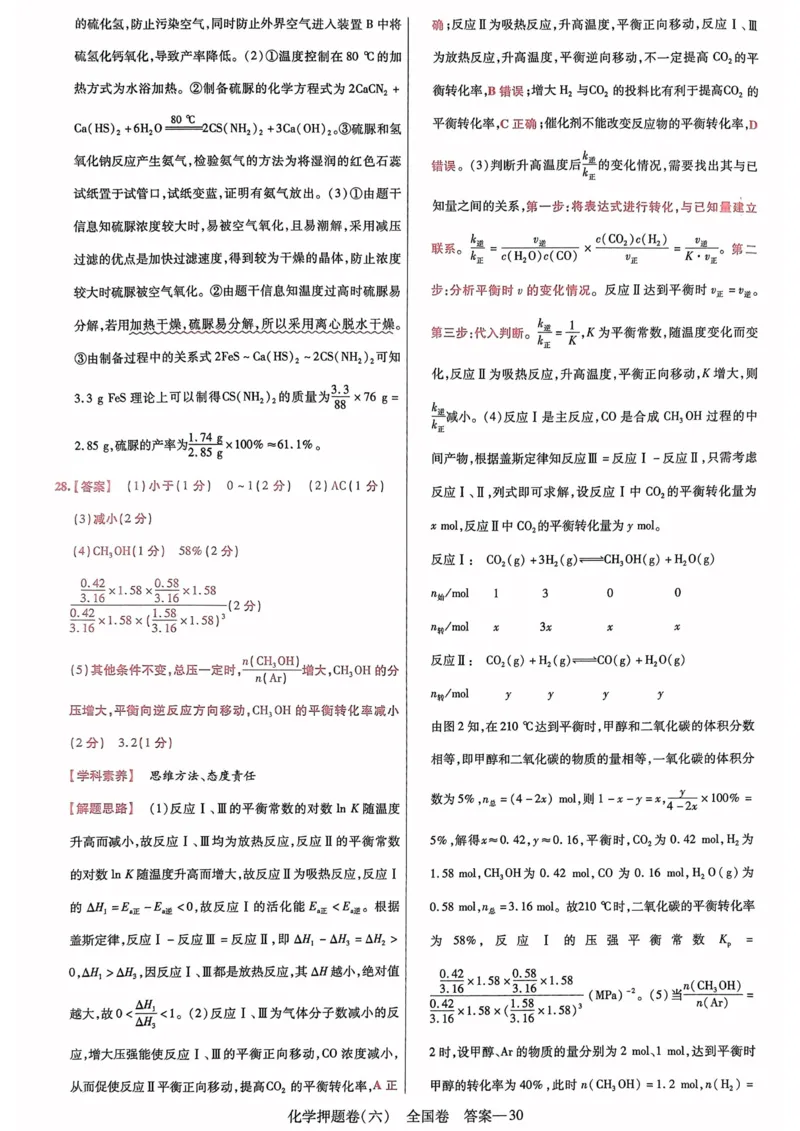 的硫化氢,防止污染空气,同时防止外界空气进入装置 B 中将
硫氢化钙氧化,导致产率降低。(2)①温度控制在 80 ℃的加
热方式为水浴加热。②制备硫脲的化学方程式为 2CaCN₂ +
Ca(HS)₂ +6H₂O =80 ℃= 2CS(NH₂)₂ +3Ca(OH)₂。③硫脲和氢
氧化钠反应产生氨气,检验氨气的方法为将湿润的红色石蕊
试纸置于试管口,试纸变蓝,证明有氨气放出。(3)①由题干
信息知硫脲浓度较大时,易被空气氧化,且易潮解,采用减压
过滤的优点是加快过滤速度,得到较为干燥的晶体,防止浓度
较大时硫脲被空气氧化。②由题干信息知温度过高时硫脲易
分解,若用加热干燥,硫脲易分解,所以采用离心脱水干燥。
③由制备过程中的关系式 2FeS ~ Ca(HS)₂ ~ 2CS(NH₂)₂可知
3.3 g FeS 理论上可以制得CS(NH₂)₂的质量为 3.3/88 ×76 g =
2.85 g,硫脲的产率为 1.74 g/2.85 g ×100% ≈61.1%。
28.【答案】 (1)小于(1 分) 0 ~ 1(2 分) (2)AC(1 分)
(3)减小(2 分)
(4)CH₃OH(1 分) 58%(2 分)
0.42/3.16 ×1.58× 0.58/3.16 ×1.58
0.42/3.16 ×1.58×(1.58/3.16 ×1.58)³ (2 分)
(5)其他条件不变,总压一定时, n(CH₃OH)/n(Ar) 增大,CH₃OH 的分
压增大,平衡向逆反应方向移动,CH₃OH 的平衡转化率减小
(2 分) 3.2(1 分)
【学科素养】 思维方法、态度责任
【解题思路】 (1)反应Ⅰ、Ⅲ的平衡常数的对数 ln K 随温度
升高而减小,故反应Ⅰ、Ⅲ均为放热反应,反应Ⅱ的平衡常数
的对数 ln K 随温度升高而增大,故反应Ⅱ为吸热反应,反应Ⅰ
的 ΔH₁ =Eₐ正 −Eₐ逆 <0,故反应Ⅰ的活化能 Eₐ正 <Eₐ逆。根据
盖斯定律,反应Ⅰ−反应Ⅲ=反应Ⅱ,即 ΔH₁ − ΔH₃ = ΔH₂ >
0,ΔH₁ >ΔH₃,因反应Ⅰ、Ⅲ都是放热反应,其 ΔH 越小,绝对值
越大,故 0< ΔH₁/ΔH₃ <1。(2)反应Ⅰ、Ⅲ为气体分子数减小的反
应,增大压强能使反应Ⅰ、Ⅲ的平衡正向移动,CO 浓度减小,
从而促使反应Ⅱ平衡正向移动,提高CO₂ 的平衡转化率,A 正
确;反应Ⅱ为吸热反应,升高温度,平衡正向移动,反应Ⅰ、Ⅲ
为放热反应,升高温度,平衡逆向移动,不一定提高 CO₂的平
衡转化率,B 错误;增大 H₂ 与CO₂ 的投料比有利于提高CO₂ 的
平衡转化率,C 正确;催化剂不能改变反应物的平衡转化率,D
错误。(3)判断升高温度后 k逆/k正 的变化情况,需要找出其与已
知量之间的关系,第一步:将表达式进行转化,与已知量建立
联系。 k逆/k正 = v逆/c(H₂O)c(CO) × c(CO₂)c(H₂)/v正 = v逆/K·v正 。第二
步:分析平衡时 v 的变化情况。反应Ⅱ达到平衡时 v正 =v逆。
第三步:代入判断。 k逆/k正 = 1/K ,K 为平衡常数,随温度变化而变
化,反应Ⅱ为吸热反应,升高温度,平衡正向移动,K 增大,则
k逆/k正 减小。(4)反应Ⅰ是主反应,CO 是合成 CH₃OH 过程的中
间产物,根据盖斯定律知反应Ⅲ=反应Ⅰ−反应Ⅱ,只需考虑
反应Ⅰ、Ⅱ,列式即可求解,设反应Ⅰ中 CO₂的平衡转化量为
x mol,反应Ⅱ中 CO₂的平衡转化量为 y mol。
反应Ⅰ: CO₂(g) +3H₂(g)⇌CH₃OH(g) +H₂O(g)
n始/mol 1 3 0 0
n转/mol x 3x x x
反应Ⅱ: CO₂(g) +H₂(g)⇌CO(g) +H₂O(g)
n转/mol y y y y
由图 2 知,在 210 ℃达到平衡时,甲醇和二氧化碳的体积分数
相等,即甲醇和二氧化碳的物质的量相等,一氧化碳的体积分
数为 5%,n总 = (4 −2x) mol,则 1 −x −y =x, y/4−2x ×100% =
5%,解得x≈0.42,y≈0.16,平衡时,CO₂为 0.42 mol,H₂为
1.58 mol,CH₃OH为 0.42 mol,CO 为 0.16 mol,H₂O(g)为
0.58 mol,n总 =3.16 mol。故210 ℃时,二氧化碳的平衡转化率
为 58%, 反应Ⅰ的压强平衡常数 Kₚ =
0.42/3.16 ×1.58× 0.58/3.16 ×1.58
0.42/3.16 ×1.58×(1.58/3.16 ×1.58)³ (MPa)⁻²。(5)当 n(CH₃OH)/n(Ar) =
2 时,设甲醇、Ar 的物质的量分别为 2 mol、1 mol,达到平衡时
甲醇的转化率为 40%,此时 n(CH₃OH) =1.2 mol,n(H₂) =
化学押题卷(六) 全国卷 答案—30